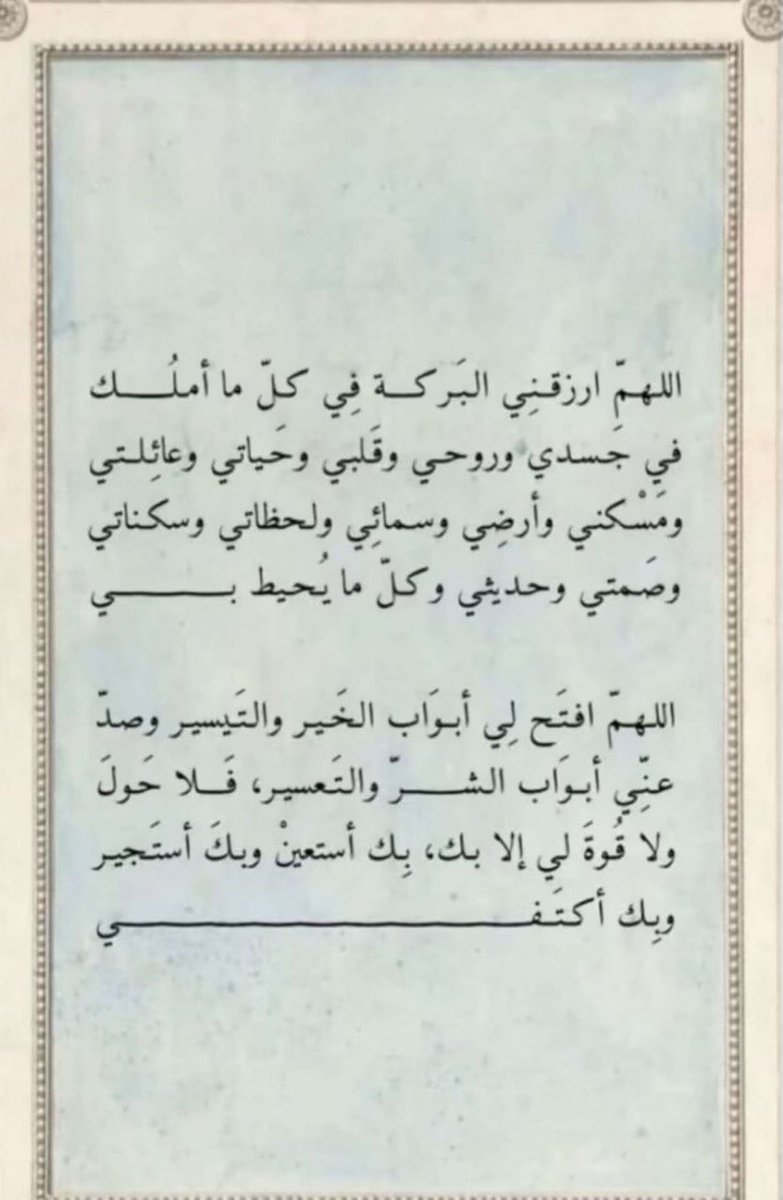 اللهمّ ارزقنِي البَركة فِي كلّ ما أملُك
في جَسدي وروحي وقَلبي وحَياتي وعائِلتي
ومَسْكني وأرضِي وسمائِي ولحظاتي وسكناتي
وصَمتي وحديثي وكلّ ما يُحيط بي
اللهمّ افتَح لِي أبوَاب الخَير والتَيسير وصدّ
عنِّي أبوَاب الشرّ والتَعسير، فَلا حَولَ
ولا قُوةَ لي إلا بك، بِك أستعينْ وبكَ أستَجير
وبِك أكتَفي